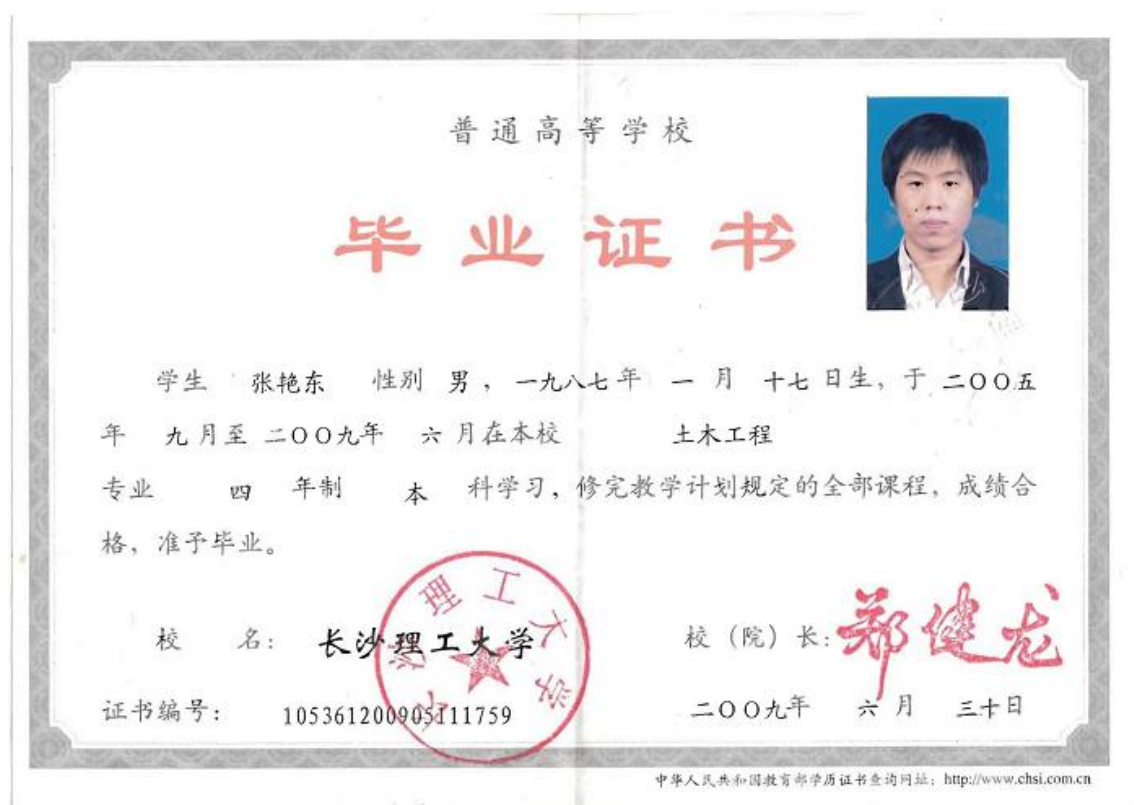 普通高等学校
毕业证书
学生 张艳东 性别 男，一九八七年 一 月 十七 日生，于 二〇〇五
年 九 月至 二〇〇九年 六 月在本校 土木工程
专业 四 年制 本 科学习，修完教学计划规定的全部课程，成绩合
格，准予毕业。
校 名： 长沙理工大学 校（院）长：郑健龙
长沙理工大学
证书编号： 105361200905111759 二〇〇九年 六 月 三十日
中华人民共和国教育部学历证书查询网址：http://www.chsi.com.cn